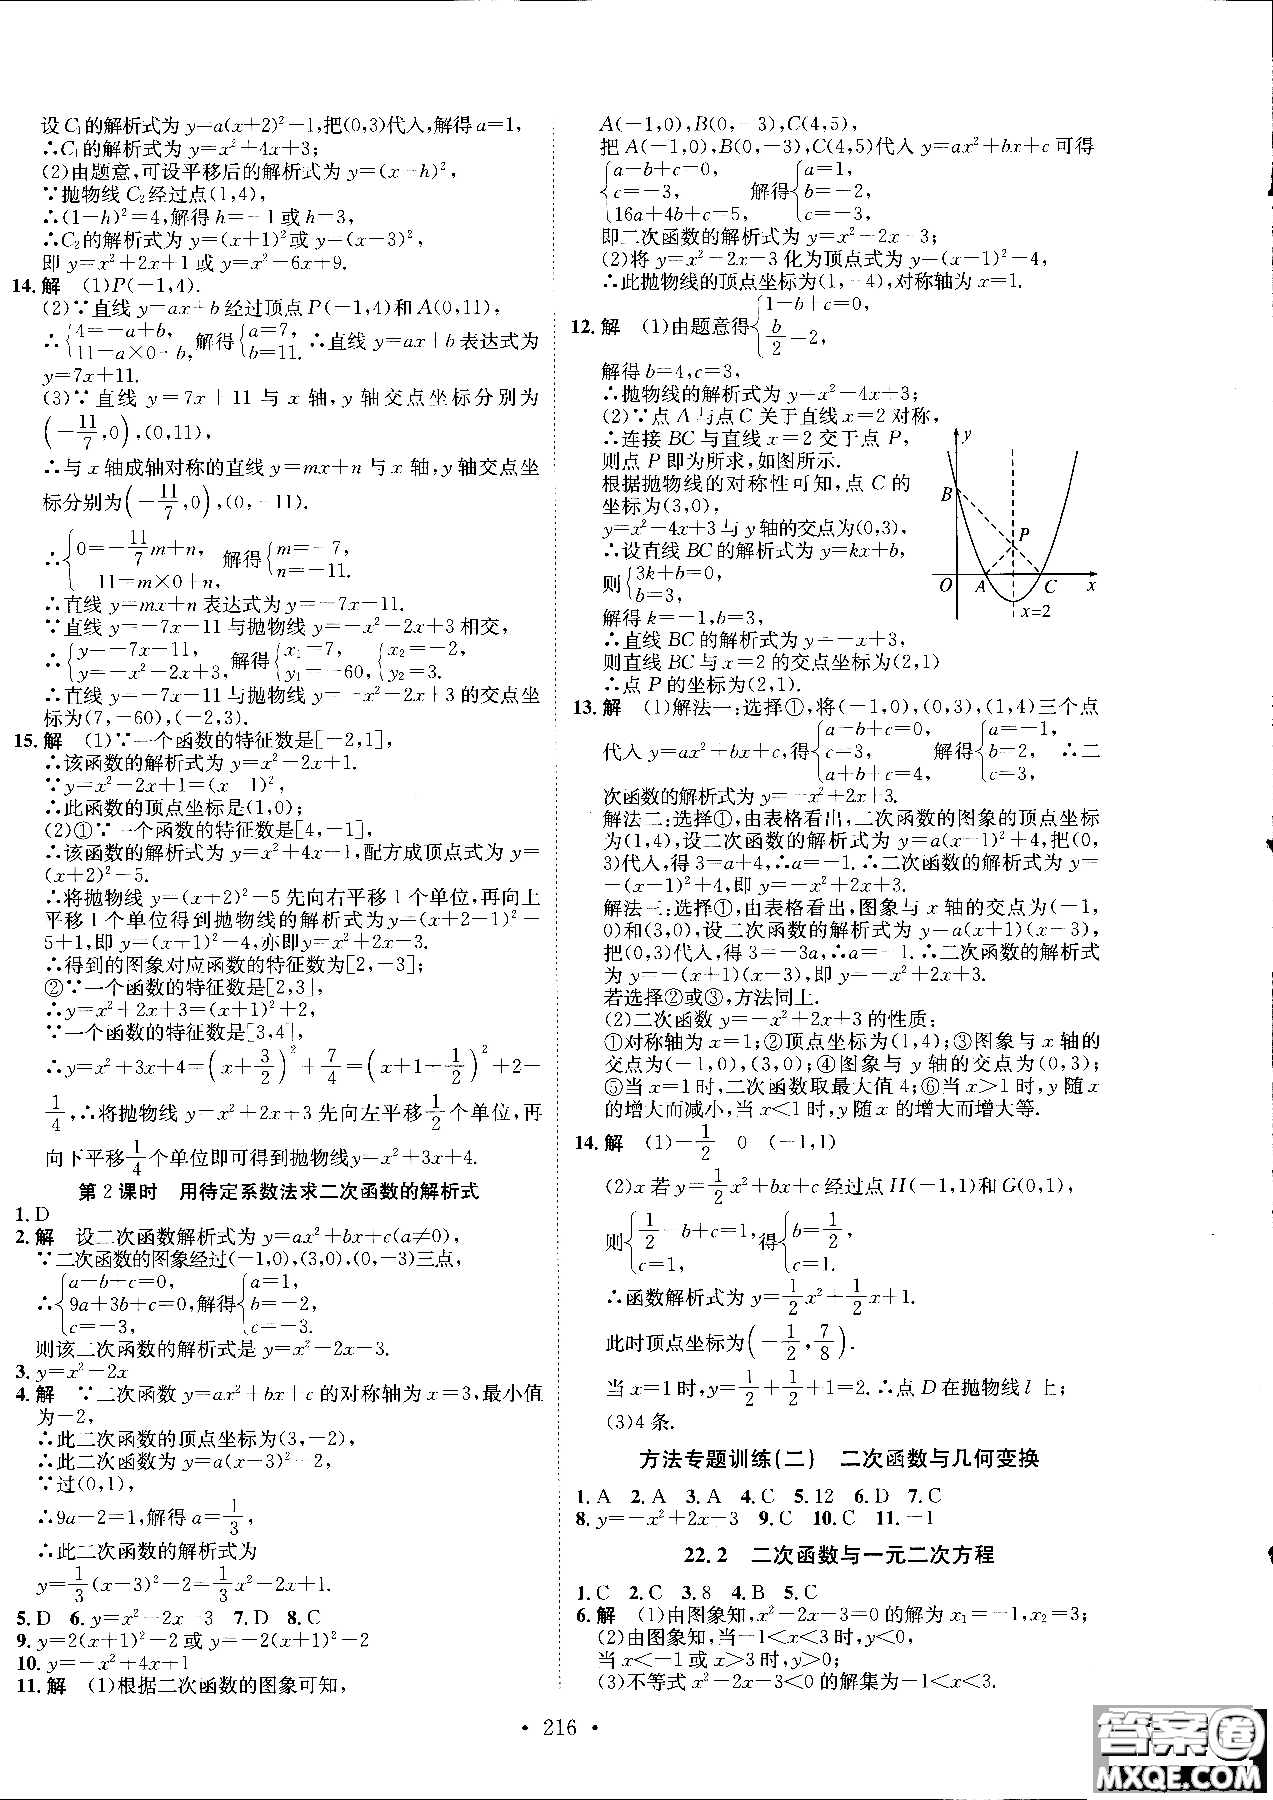 设C₁的解析式为 y=a(x+2)²-1,把(0,3)代入,解得a=1,
∴C₁的解析式为 y=x²+4x+3;
(2)由题意,可设平移后的解析式为 y=(x-h)²,
∵抛物线C₂经过点(1,4),
∴(1-h)²=4,解得 h=-1或 h=3,
∴C₂的解析式为 y=(x+1)²或 y=(x-3)²,
即 y=x²+2x+1 或 y=x²-6x+9.
14.解 (1)P(-1,4).
(2)∵直线 y=ax+b经过顶点P(-1,4)和A(0,11),
∴{4=-a+b, 11=a×0+b, 解得{a=7, b=11. ∴直线 y=ax+b表达式为
y=7x+11.
(3)∵直线 y=7x+11 与 x 轴,y 轴交点坐标分别为
(-11/7,0),(0,11),
∴与x轴成轴对称的直线 y=mx+n 与 x 轴,y轴交点坐
标分别为(-11/7,0),(0,-11).
∴{0=-11/7m+n, -11=m×0+n, 解得{m=-7, n=-11.
∴直线 y=mx+n 表达式为 y=-7x-11.
∵直线 y=-7x-11 与抛物线 y=-x²-2x+3相交,
∴{y=-7x-11, y=-x²-2x+3, 解得{x₁=7, y₁=-60, {x₂=-2, y₂=3.
∴直线 y=-7x-11与抛物线 y=-x²-2x+3的交点坐
标为(7,-60),(-2,3).
15.解 (1)∵一个函数的特征数是[-2,1],
∴该函数的解析式为 y=x²-2x+1.
∵y=x²-2x+1=(x-1)²,
∴此函数的顶点坐标是(1,0);
(2)①∵一个函数的特征数是[4,-1],
∴该函数的解析式为 y=x²+4x-1,配方成顶点式为 y=
(x+2)²-5.
∴将抛物线 y=(x+2)²-5先向右平移1个单位,再向上
平移1个单位得到抛物线的解析式为 y=(x+2-1)²-
5+1,即 y=(x+1)²-4,亦即y=x²+2x-3.
∴得到的图象对应函数的特征数为[2,-3];
②∵一个函数的特征数是[2,3],
∴y=x²+2x+3=(x+1)²+2,
∵一个函数的特征数是[3,4],
∴y=x²+3x+4=(x+3/2)²+7/4=(x+1+1/2)²+2-
1/4,∴将抛物线 y=x²+2x+3先向左平移1/2个单位,再
向下平移1/4个单位即可得到抛物线y=x²+3x+4.
第2课时 用待定系数法求二次函数的解析式
1.D
2.解 设二次函数解析式为 y=ax²+bx+c(a≠0),
∵二次函数的图象经过(-1,0),(3,0),(0,-3)三点,
∴{a-b+c=0, 9a+3b+c=0, c=-3, 解得{a=1, b=-2, c=-3.
则该二次函数的解析式是 y=x²-2x-3.
3.y=x²-2x
4.解 ∵二次函数 y=ax²+bx+c 的对称轴为 x=3,最小值
为-2,
∴此二次函数的顶点坐标为(3,-2),
∴此二次函数为 y=a(x-3)²-2,
∵过(0,1),
∴9a-2=1,解得 a=1/3,
∴此二次函数的解析式为
y=1/3(x-3)²-2=1/3x²-2x+1.
5.D 6.y=x²-2x-3 7.D 8.C
9.y=2(x+1)²-2或 y=-2(x+1)²-2
10.y=-x²+4x+1
11.解 (1)根据二次函数的图象可知,
A(-1,0),B(0,-3),C(4,5),
把A(-1,0),B(0,-3),C(4,5)代入 y=ax²+bx+c 可得
{a-b+c=0, c=-3, 16a+4b+c=5, 解得{a=1, b=-2, c=-3,
即二次函数的解析式为 y=x²-2x-3;
(2)将 y=x²-2x-3 化为顶点式为 y=(x-1)²-4,
∴此抛物线的顶点坐标为(1,-4),对称轴为 x=1.
12.解 (1)由题意得{1-b+c=0, b/2=2,
解得b=4,c=3,
∴抛物线的解析式为 y=x²-4x+3;
(2)∵点A与点C关于直线x=2对称,
∴连接BC与直线x=2交于点P,
则点P即为所求,如图所示.
根据抛物线的对称性可知,点C的
坐标为(3,0),
y=x²-4x+3与y轴的交点为(0,3),
∴设直线BC的解析式为 y=kx+b,
则{3k+b=0, b=3,
解得 k=-1,b=3,
∴直线BC的解析式为 y=-x+3,
则直线BC与x=2的交点坐标为(2,1)
∴点P的坐标为(2,1).
y
B
P
O A C x
x=2
13.解 (1)解法一:选择①,将(-1,0),(0,3),(1,4)三个点
代入 y=ax²+bx+c,得{a-b+c=0, c=3, a+b+c=4, 解得{a=-1, b=2, c=3, ∴二
次函数的解析式为 y=-x²+2x+3.
解法二:选择①,由表格看出,二次函数的图象的顶点坐标
为(1,4),设二次函数的解析式为 y=a(x-1)²+4,把(0,
3)代入,得3=a+4,∴a=-1.∴二次函数的解析式为 y=
-(x-1)²+4,即 y=-x²+2x+3.
解法三:选择①,由表格看出,图象与 x 轴的交点为(-1,
0)和(3,0),设二次函数的解析式为 y=a(x+1)(x-3),
把(0,3)代入,得3=-3a,∴a=-1.∴二次函数的解析式
为 y=-(x+1)(x-3),即 y=-x²+2x+3.
若选择②或③,方法同上.
(2)二次函数 y=-x²+2x+3的性质:
①对称轴为 x=1;②顶点坐标为(1,4);③图象与 x 轴的
交点为(-1,0),(3,0);④图象与 y 轴的交点为(0,3);
⑤当 x=1时,二次函数取最大值4;⑥当x>1时,y随x
的增大而减小,当x<1时,y随x的增大而增大等.
14.解 (1)-1/2 0 (-1,1)
(2)x若 y=1/2x²+bx+c经过点H(-1,1)和G(0,1),
则{1/2-b+c=1, c=1, 得{b=1/2, c=1.
∴函数解析式为 y=1/2x²+1/2x+1.
此时顶点坐标为(-1/2,7/8).
当x=1时,y=1/2+1/2+1=2.∴点D在抛物线l上;
(3)4条.
方法专题训练(二) 二次函数与几何变换
1.A 2.A 3.A 4.C 5.12 6.D 7.C
8.y=-x²+2x-3 9.C 10.C 11.-1
22.2 二次函数与一元二次方程
1.C 2.C 3.8 4.B 5.C
6.解 (1)由图象知,x²-2x-3=0的解为 x₁=-1,x₂=3;
(2)由图象知,当-1<x<3时,y<0,
当x<-1或x>3时,y>0;
(3)不等式 x²-2x-3<0的解集为-1<x<3.
• 216 •
答案圈
MXQE.COM